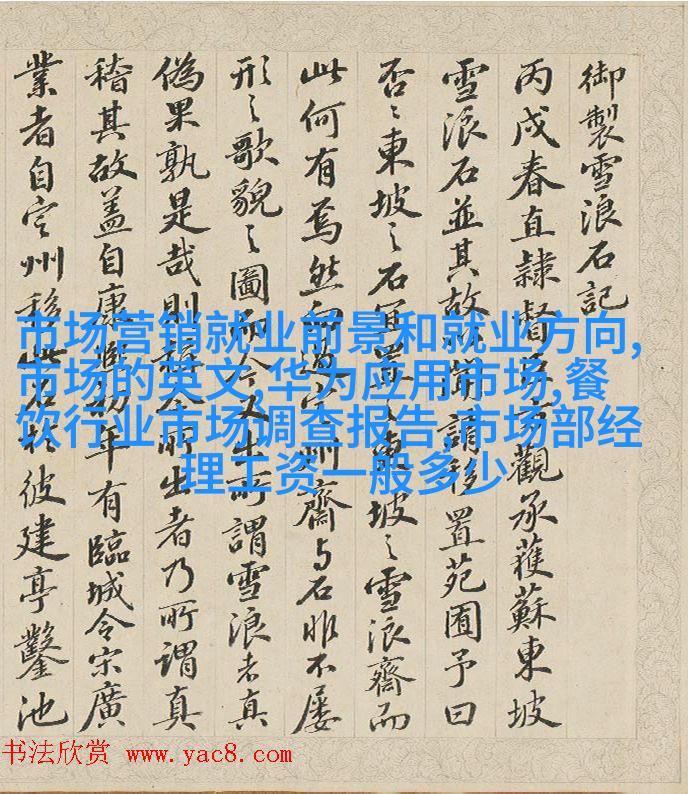 御製雪浪石記
丙戌春直隷督臣方觀承獲蘇東坡
雪浪石並其故聞請移置苑囿予曰
否〻東坡之石宜置之東坡之雪浪齋而
此何有焉然向過定州齋与石非不屡
形之歌貌之圖而今又出所謂雪浪者真
偽果孰是哉則謂今所出者乃所謂真
稽其故盖自康熙初年有臨城令宋廣
業者自定州移此石於彼建亭鑿池
市场营销就业前景和就业方向,
市场的英文,华为应用市场,餐
饮行业市场调查报告,市场部经
理工资一般多少
书法欣赏 www.yac8.com